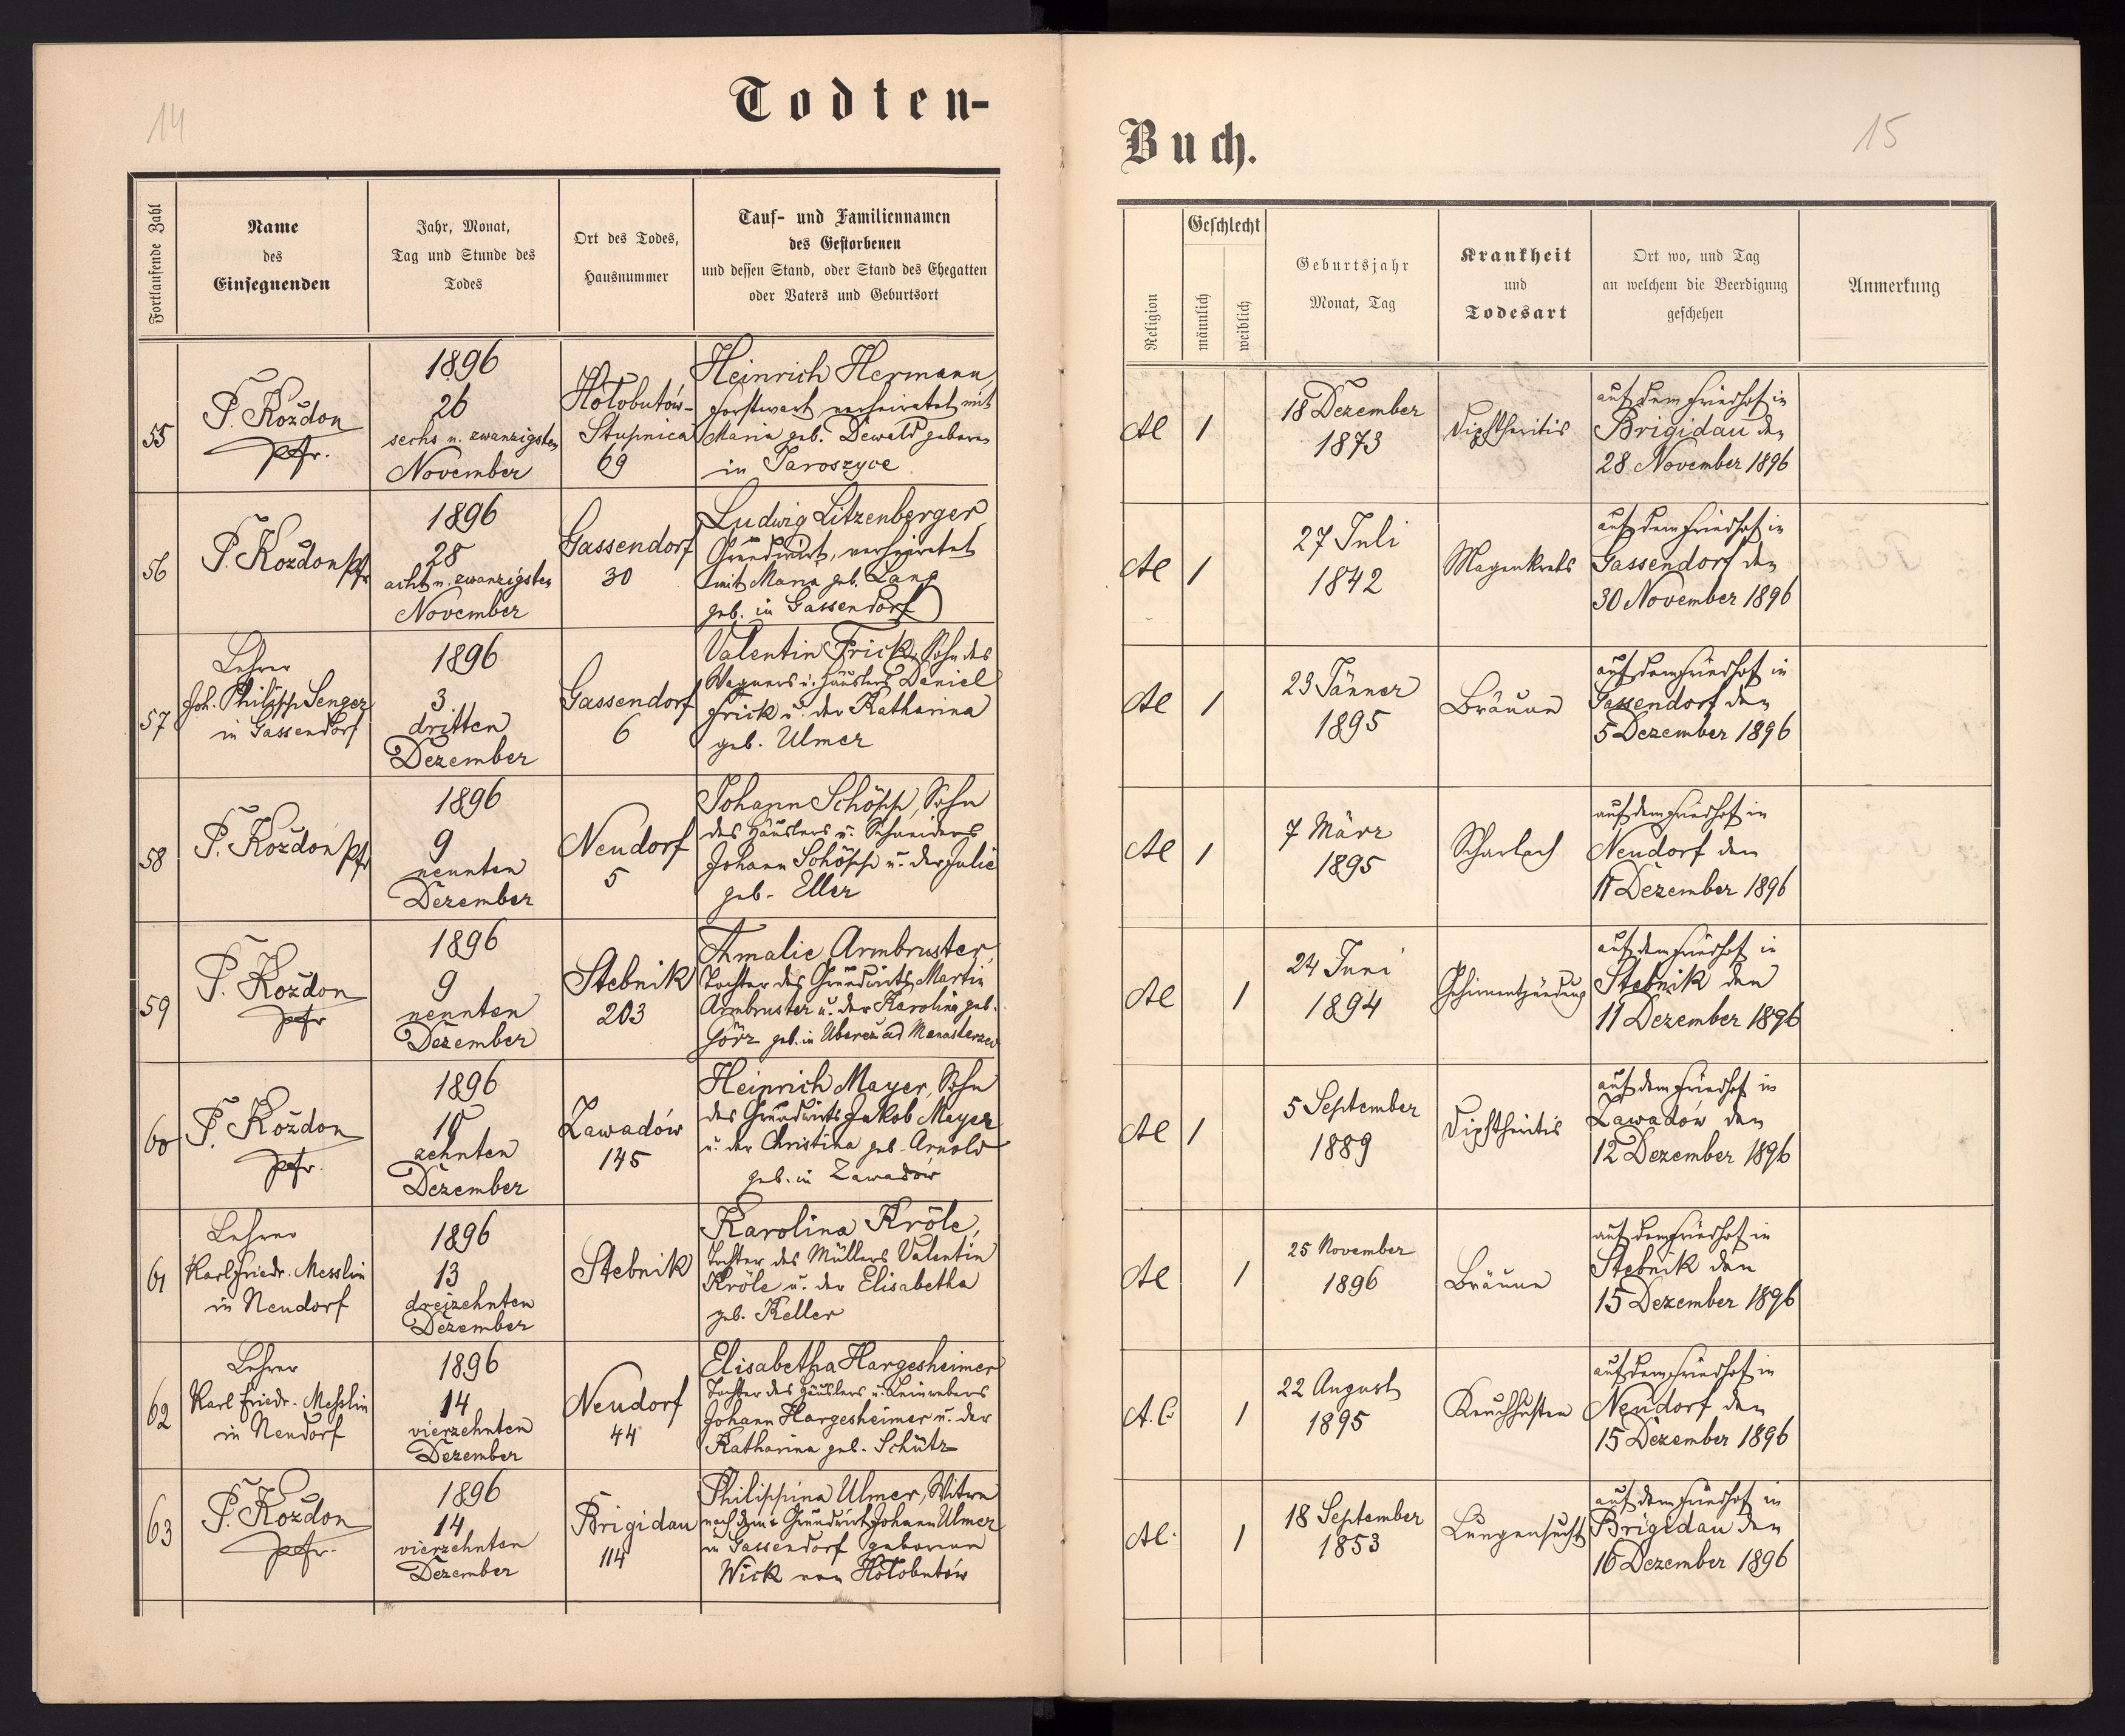 14
Todten-
Fortlaufende Zahl
Name
des
Einsegnenden
Jahr, Monat,
Tag und Stunde des
Todes
Ort des Todes,
Hausnummer
Tauf- und Familiennamen
des Gestorbenen
und dessen Stand, oder Stand des Ehegatten
oder Vaters und Geburtsort
55
P. Kozdon
Pfr.
1896
26
sechs u. zwanzigsten
November
Hołobutów-
Stupnica
69
Heinrich Hermann,
Forstwart verheiratet mit
Maria geb. Dewald geboren
in Jaroszyce
56
P. Kozdon Pfr
1896
28
acht u. zwanzigsten
November
Gassendorf
30
Ludwig Litzenberger,
Grundwirt, verheiratet
mit Maria geb. Lang
geb. in Gassendorf
57
Lehrer
Joh. Philipp Senger
in Gassendorf
1896
3
dritten
Dezember
Gassendorf
6
Valentin Frick, Sohn des
Wagners u. Häuslers Daniel
Frick u. der Katharina
geb. Ulmer
58
P. Kozdon Pfr
1896
9
neunten
Dezember
Neudorf
5
Johann Schöpp, Sohn
des Häuslers u. Schneiders
Johann Schöpp u. der Julie
geb. Eller
59
P. Kozdon
Pfr
1896
9
neunten
Dezember
Stebnik
203
Amalie Armbruster,
Tochter des Grundwirts Martin
Armbruster u. der Karolina geb.
Görz geb. in Uberez ad Manasterzec
60
P. Kozdon
Pfr.
1896
10
zehnten
Dezember
Zawadów
145
Heinrich Mayer, Sohn
des Grundwirts Jakob Mayer
u. der Christina geb. Arnold
geb. in Zawadów
61
Lehrer
Karl Friedr. Messlin
in Neudorf
1896
13
dreizehnten
Dezember
Stebnik
Karolina Kröle,
Tochter des Müllers Valentin
Kröle u. der Elisabetha
geb. Keller
62
Lehrer
Karl Friedr. Messlin
in Neudorf
1896
14
vierzehnten
Dezember
Neudorf
44
Elisabetha Hargesheimer
Tochter des Häuslers u. Leinwebers
Johann Hargesheimer u. der
Katharina geb. Schütz
63
P. Kozdon
Pfr.
1896
14
vierzehnten
Dezember
Brigidau
114
Philippina Ulmer, Witwe
nach dem + Grundwirt Johann Ulmer
in Gassendorf geborene
Wick von Hołobutów
15
Buch.
Religion
Geschlecht
männlich
weiblich
Geburtsjahr
Monat, Tag
Krankheit
und
Todesart
Ort wo, und Tag
an welchem die Beerdigung
geschehen
Anmerkung
AC
1
18 Dezember
1873
Diphtheritis
auf dem Friedhof in
Brigidau den
28 November 1896
AC
1
27 Juli
1842
Magenkrebs
auf dem Friedhof in
Gassendorf den
30 November 1896
AC
1
23 Jänner
1895
Bräune
auf dem Friedhof in
Gassendorf den
5 Dezember 1896
AC
1
7 März
1895
Scharlach
auf dem Friedhof in
Neudorf den
11 Dezember 1896
AC
1
24 Juni
1894
Gehirnentzündung
auf dem Friedhof in
Stebnik den
11 Dezember 1896
AC
1
5 September
1889
Diphtheritis
auf dem Friedhof in
Zawadów den
12 Dezember 1896
AC
1
25 November
1896
Bräune
auf dem Friedhof in
Stebnik den
15 Dezember 1896
A.C.
1
22 August
1895
Keuchhusten
auf dem Friedhof in
Neudorf den
15 Dezember 1896
AC.
1
18 September
1853
Lungensucht
auf dem Friedhof in
Brigidau den
16 Dezember 1896